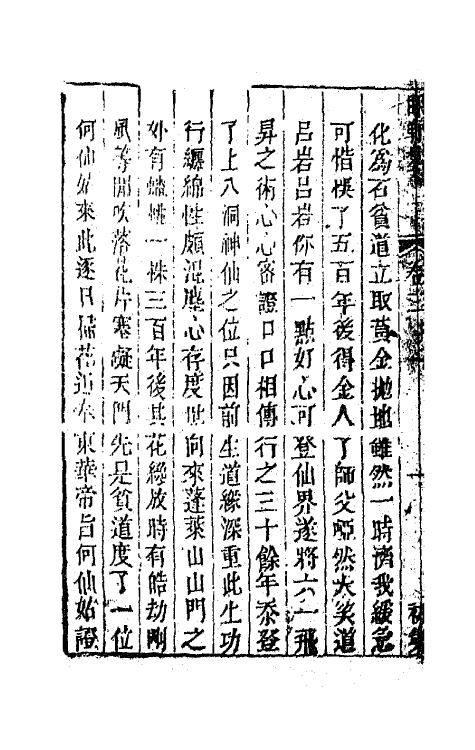 化為石貧道立取黃金拋地雖然一時濟我緩急
可惜悞了五百年後得金人了師父啞然大笑道
呂岩呂岩你有一點好心可登仙界遂將六一飛
昇之術心心密證口口相傳行之三十餘年忝登
了上八洞神仙之位只因前生道緣深重此生功
行纏綿性頗混塵心存度世向來蓬萊山山門之
外有蟠桃一株三百年後其花纔放時有皓劫剛
風等閒吹落花片塞礙天門先是貧道度了一位
何仙姑來此逐日掃花近奉東華帝旨何仙姑證